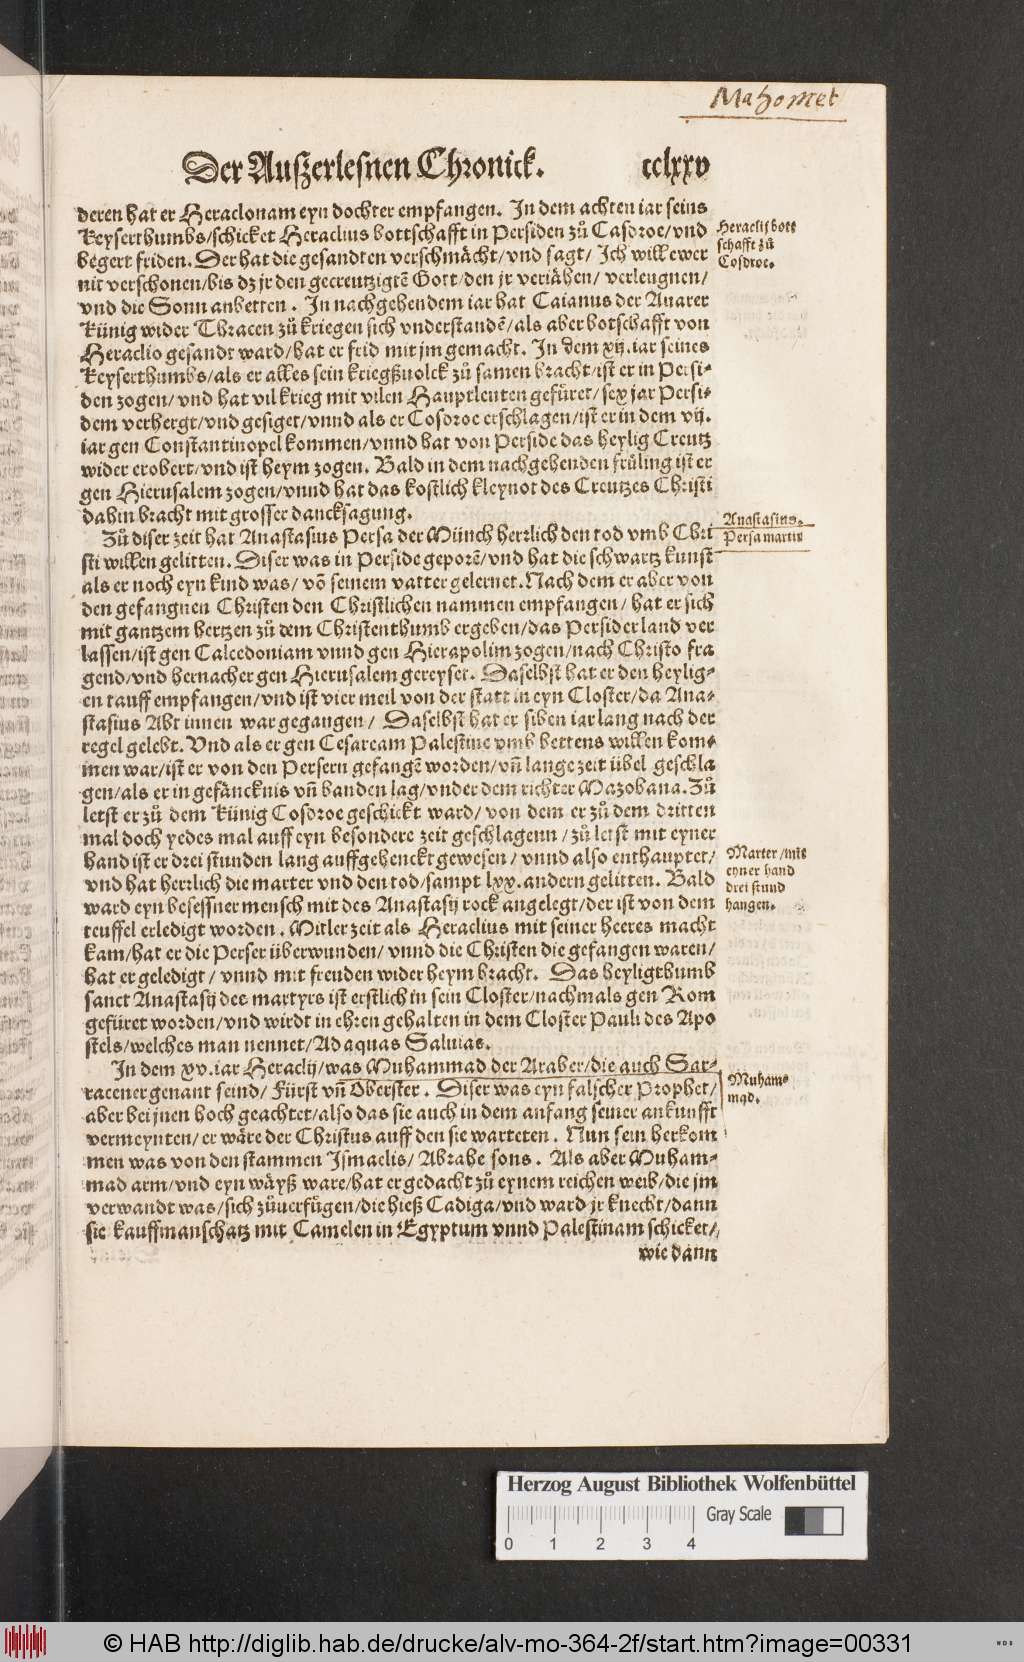 Mahomet
Der Außerlesnen Chronick. cclxxv
deren hat er Heraclonam eyn dochter empfangen. In dem achten iar seins
Keyserthumbs/schicket Heraclius bottschafft in Persiden zů Casdroe/vnd
begert friden. Der hat die gesandten verschmächt/vnd sagt/ Ich will ewer
nit verschonen/bis dz jr den gecreutzigtē Gott/den jr veriähen/ verleugnen/
vnd die Sonn anbetten. In nachgehendem iar hat Caianus der Auarer
Künig wider Thracen zů kriegen sich vnderstandē/als aber botschafft von
Heraclio gesandt ward/hat er frid mit jm gemacht. In dem xij. iar seines
Keyserthumbs/als er alles sein kriegßuolck zů samen bracht/ist er in Persi-
den zogen/vnd hat vil krieg mit vilen Hauptleuten gefůret/sex jar Persi-
dem verhergt/vnd gesiget/vnnd als er Cosdroe erschlagen/ist er in dem vij.
iar gen Constantinopel kommen/vnnd hat von Perside das heylig Creutz
wider erobert/vnd ist heym zogen. Bald in dem nachgehenden früling ist er
gen Hierusalem zogen/vnnd hat das kostlich kleynot des Creutzes Christi
dahin bracht mit grosser dancksagung.
Zů diser zeit hat Anastasius Persa der Münch herrlich den tod vmb Chri
sti willen gelitten. Diser was in Perside geporē/vnd hat die schwartz kunst
als er noch eyn kind was/ vō seinem vatter gelernet. Nach dem er aber von
den gefangnen Christen den Christlichen nammen empfangen/ hat er sich
mit gantzem hertzen zů dem Christenthumb ergeben/das Persiderland ver
lassen/ist gen Calcedoniam vnnd gen Hierapolim zogen/nach Christo fra
gend/vnd hernacher gen Hierusalem gereyset. Daselbst hat er den heylig-
en tauff empfangen/vnd ist vier meil von der statt in eyn Closter/da Ana-
stasius Abt innen war gegangen/ Daselbst hat er siben iar lang nach der
regel gelebt. Vnd als er gen Cesaream Palestine vmb bettens willen kom-
men war/ist er von den Persern gefangē worden/vn̄ lange zeit übel geschla
gen/als er in gefäncknis vn̄ banden lag/vnder dem richter Mazobana. Zů
letst er zů dem Künig Cosdroe geschickt ward/ von dem er zů dem dritten
mal doch yedes mal auff eyn besondere zeit geschlagenn/zů letst mit eyner
hand ist er drei stunden lang auffgehenckt gewesen/ vnnd also enthauptet/
vnd hat herrlich die marter vnd den tod/sampt lxx. andern gelitten. Bald
ward eyn besessner mensch mit des Anastasij rock angelegt/der ist von dem
teuffel erledigt worden. Mitler zeit als Heraclius mit seiner heeres macht
kam/hat er die Perser überwunden/ vnnd die Christen die gefangen waren/
hat er geledigt/ vnnd mit freuden wider heym bracht. Das heyligthumb
sanct Anastasij des martyrs ist erstlich in sein Closter/nachmals gen Rom
gefüret worden/vnd wirdt in ehren gehalten in dem Closter Pauli des Apo
stels/welches man nennet/Ad aquas Saluias.
In dem xv. iar Heraclij/was Muhammad der Araber/die auch Sar-
racener genant seind/ Fürst vn̄ Oberster. Diser was eyn falscher Prophet/
aber bei jnen hoch geachtet/also das sie auch in dem anfang seiner ankunfft
vermeynten/er wäre der Christus auff den sie warteten. Nun sein herkom
men was von den stammen Ismaelis/ Abrahe sons. Als aber Muham-
mad arm/vnd eyn wäyß ware/hat er gedacht zů eynem reichen weib/die jm
verwandt was/sich zůuerfůgen/die hieß Cadiga/vnd ward jr knecht/dann
sie kauffmanschatz mit Camelen in Egyptum vnnd Palestinam schicket/
wie dann
Heraclij bott
schafft zů
Cosdroe.
Anastasius.
Persa martir
Marter/mit
eyner hand
drei stund
hangen.
Muham-
mad.
Herzog August Bibliothek Wolfenbüttel
Gray Scale
0 1 2 3 4
© HAB http://diglib.hab.de/drucke/alv-mo-364-2f/start.htm?image=00331